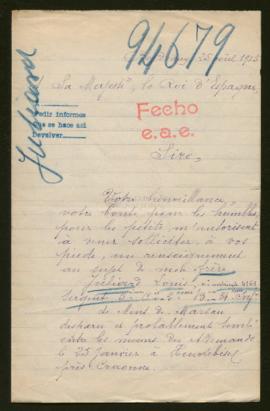 94679
25 avril 1915
Sa Majesté, le Roi d'Espagne,
Fecho
e.a.e.
Pedir informes
que se hace así
Devolver
Juliard
Sire,
Votre bienveillance
votre bonté pour les humbles,
pour les petits m'autorisent
à venir solliciter, à vos
pieds, un renseignement
au sujet de mon frère
Louis,
Sergent
de Mont de Marsan
disparu et probablement tombé
entre les mains des Allemands
le 25 Janvier à
près Craonne.